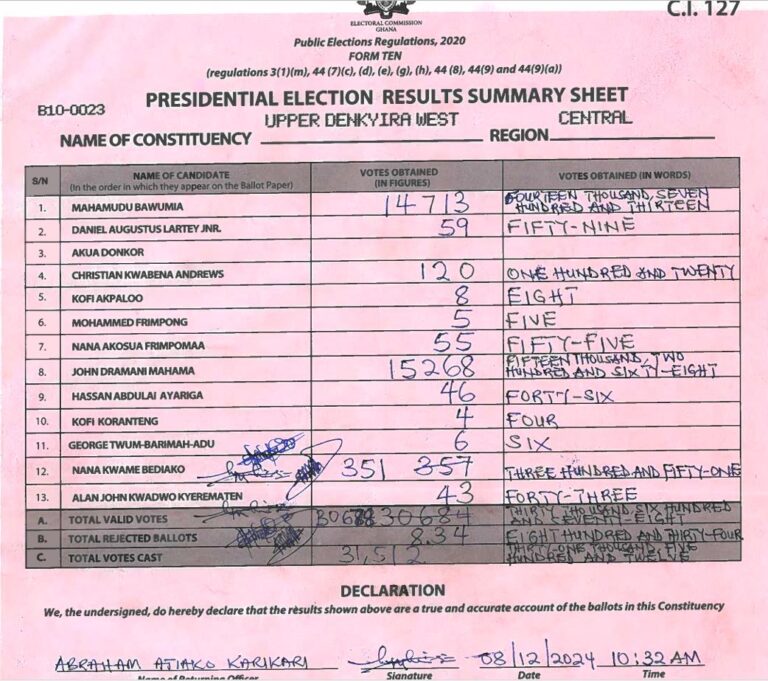 C.I. 127
ELECTORAL COMMISSION
GHANA
Public Elections Regulations, 2020
FORM TEN
(regulations 3(1)(m), 44 (7)(c), (d), (e), (g), (h), 44 (8), 44(9) and 44(9)(a))
B10-0023
PRESIDENTIAL ELECTION RESULTS SUMMARY SHEET
UPPER DENKYIRA WEST CENTRAL
NAME OF CONSTITUENCY REGION
S/N NAME OF CANDIDATE (In the order in which they appear on the Ballot Paper) VOTES OBTAINED (IN FIGURES) VOTES OBTAINED (IN WORDS)
1. MAHAMUDU BAWUMIA 14713 FOURTEEN THOUSAND, SEVEN HUNDRED AND THIRTEEN
2. DANIEL AUGUSTUS LARTEY JNR. 59 FIFTY-NINE
3. AKUA DONKOR
4. CHRISTIAN KWABENA ANDREWS 120 ONE HUNDRED AND TWENTY
5. KOFI AKPALOO 8 EIGHT
6. MOHAMMED FRIMPONG 5 FIVE
7. NANA AKOSUA FRIMPOMAA 55 FIFTY-FIVE
8. JOHN DRAMANI MAHAMA 15268 FIFTEEN THOUSAND, TWO HUNDRED AND SIXTY-EIGHT
9. HASSAN ABDULAI AYARIGA 46 FORTY-SIX
10. KOFI KORANTENG 4 FOUR
11. GEORGE TWUM-BARIMAH-ADU 6 SIX
12. NANA KWAME BEDIAKO 351 357 THREE HUNDRED AND FIFTY-ONE
13. ALAN JOHN KWADWO KYEREMATEN 43 FORTY-THREE
A. TOTAL VALID VOTES 30684 THIRTY THOUSAND, SIX HUNDRED AND SEVENTY-EIGHT
B. TOTAL REJECTED BALLOTS 834 EIGHT HUNDRED AND THIRTY-FOUR
C. TOTAL VOTES CAST 31,512 THIRTY-ONE THOUSAND, FIVE HUNDRED AND TWELVE
DECLARATION
We, the undersigned, do hereby declare that the results shown above are a true and accurate account of the ballots in this Constituency
ABRAHAM ATIAKO KARIKARI 08/12/2024 10:32 AM
Name of Returning Officer Signature Date Time